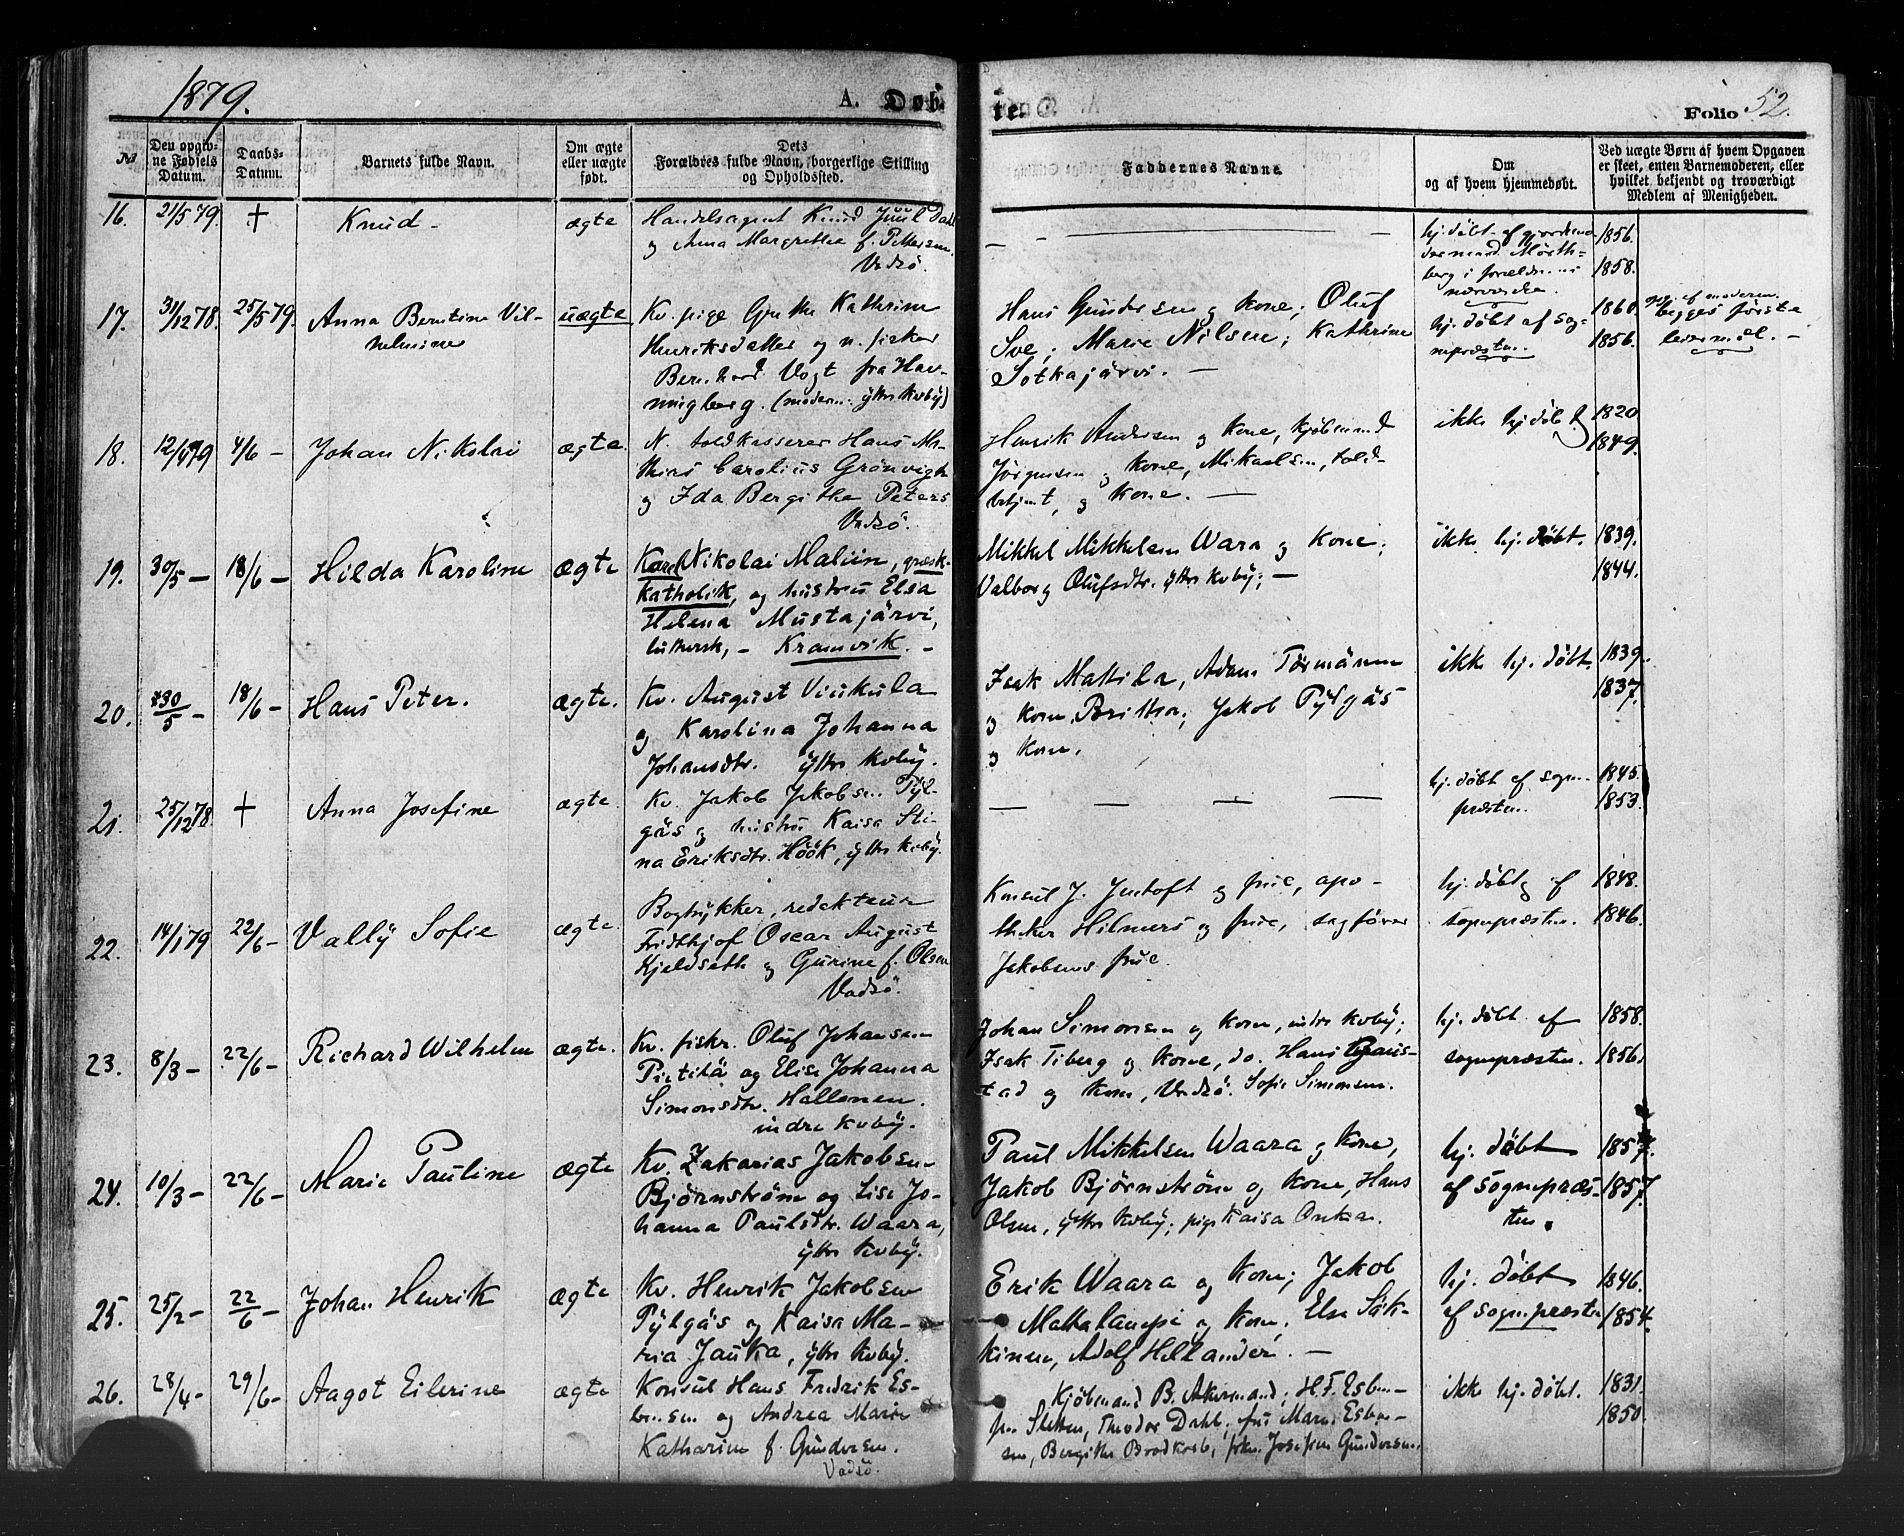 1879.
A. Døb-
te.
Folio 52.
No
Den opgiv-
ne Fødsels
Datum.
Daabs-
Datum.
Barnets fulde Navn.
Om ægte
eller uægte
født.
Dets
Forældres fulde Navn, borgerlige Stilling
og Opholdssted.
Faddernes Navne.
Om
og af hvem hjemmedøbt.
Ved uægte Børn af hvem Opgaven
er skeet, enten Barnemoderen, eller
hvilket bekjendt og troværdigt
Medlem af Menigheden.
16. 21/5 79. + Knud - ægte
Handelsagent Knud Juul Dahl
og Anna Margrethe f. Pettersen
Vadsö.
hj. døbt af
i forældrenes
nærværelse.
1856.
1858.
17. 31/12 78. 25/5 79. Anna Berntine Vil-
helmine
uægte
Kv. pige Grethe Kathrine
Henriksdatter og n. fisker
Bernhard Vogt fra Hav-
ningberg. (modern: yttre Kvby)
Hans Gundersen og kone; Oluf
Sve; Marie Nilsen; Kathrine
Sotkajärvi. -
hj. døbt af sog-
nepræsten.
1860.
1856.
af moderen.
begges første
leiermål. -
18. 12/4 79 4/6 - Johan Nikolai ægte.
N. toldkasserer Hans Ma-
thias Carolius Grönvigh
og Ida Bergithe Peters
Vadsö.
Henrik Andersen og kone, kjøbmand
Jörgensen og kone, Mikaelsen, told-
betjent, og kone. -
ikke hj. døbt
1820
1849.
19. 30/5 - 18/6 - Hilda Karoline ægte
Karel Nikolai Maliin, græsk-
katholik, og hustru Elsa
Helena Mustajärvi,
luthersk, - Kramvik. -
Mikkel Mikkelsen Wara og kone;
Valborg Olufsdtr. yttre kvby; -
ikke hj. døbt.
1839.
1844.
20. 30/5 - 18/6 - Hans Peter. ægte.
Kv. August Viukula
og Karolina Johanna
Johansdtr. yttre kvby.
Isak Mattila, Adam Törmänen
og kone Britha; Jakob Pylgäs
og kone.
ikke hj. døbt.
1839.
1837.
21. 25/12 78. + Anna Josefine ægte.
Kv. Jakob Jakobsen Pyl-
gäs og hustru Kaisa Sti-
na Eriksdtr. Höök, yttre kvby.
hj. døbt af sogne-
præsten.
1845.
1853.
22. 14/1 79 22/6 - Vally Sofie ægte.
Bogtrykker, redakteur
Fridthjof Oscar August
Kjeldseth og Gurine f. Olsen
Vadsö.
Konsul J. Jentoft og frue, apo-
theker Hilmers og frue, sagförer
Jakobsens frue.
hj. døbt af
sognepræsten.
1848.
1846.
23. 8/3 - 22/6 - Richard Wilhelm ægte.
Kv. fiskr. Oluf Johansen
Pietilä og Elise Johanna
Simonsdtr. Hallonen.
indre kvby.
Johan Simonsen og kone, indre kvby;
Isak Tiberg og kone, do. Hans
tad og kone, Vadsö. Sofie Simonsen.
hj. døbt af
sognepræsten.
1858.
1856.
24. 10/3 - 22/6 - Marie Pauline ægte
Kv. Zakarias Jakobsen
Bjørnstrøm og Lise Jo-
hanna Paulsdtr. Waara,
yttre kvby.
Paul Mikkelsen Waara og kone,
Jakob Bjørnstrøm og kone, Hans
Olsen, yttre kvby; pige Kaisa Onka.
hj. døbt
af sognepræs-
ten.
1857.
1857.
25. 25/2 - 22/6 - Johan Henrik ægte
Kv. Henrik Jakobsen
Pylgäs og Kaisa Ma-
ria Jauka, yttre kvby.
Erik Waara og kone; Jakob
Mattalampi og kone, Else Säk-
kinen, Adolf Hellander. -
hj. døbt
af sognepræsten
1846.
1854.
26. 28/4 - 29/6 - Aagot Eilerine ægte
Konsul Hans Fredrik Es-
bensen og Andrea Marie
Katharine f. Gundersen.
Vadsö.
Kjøbmand B. Akermand; H. F. Esben-
Sletten, Theodor Dahl; fru Marie Esben-
sen, Bergithe Brodkorb, frkn. Josefine Gundersen.
ikke hj. døbt.
1831.
1850.